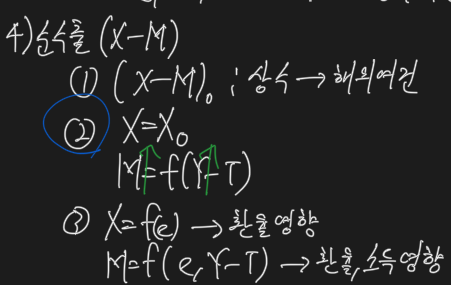 4) 순수출 (X-M)
① (X-M)₀ ; 상수 → 해외여건
② X=X₀
M=f(Y-T)
③ X=f(e) → 환율영향
M=f(e, Y-T) → 환율, 소득영향